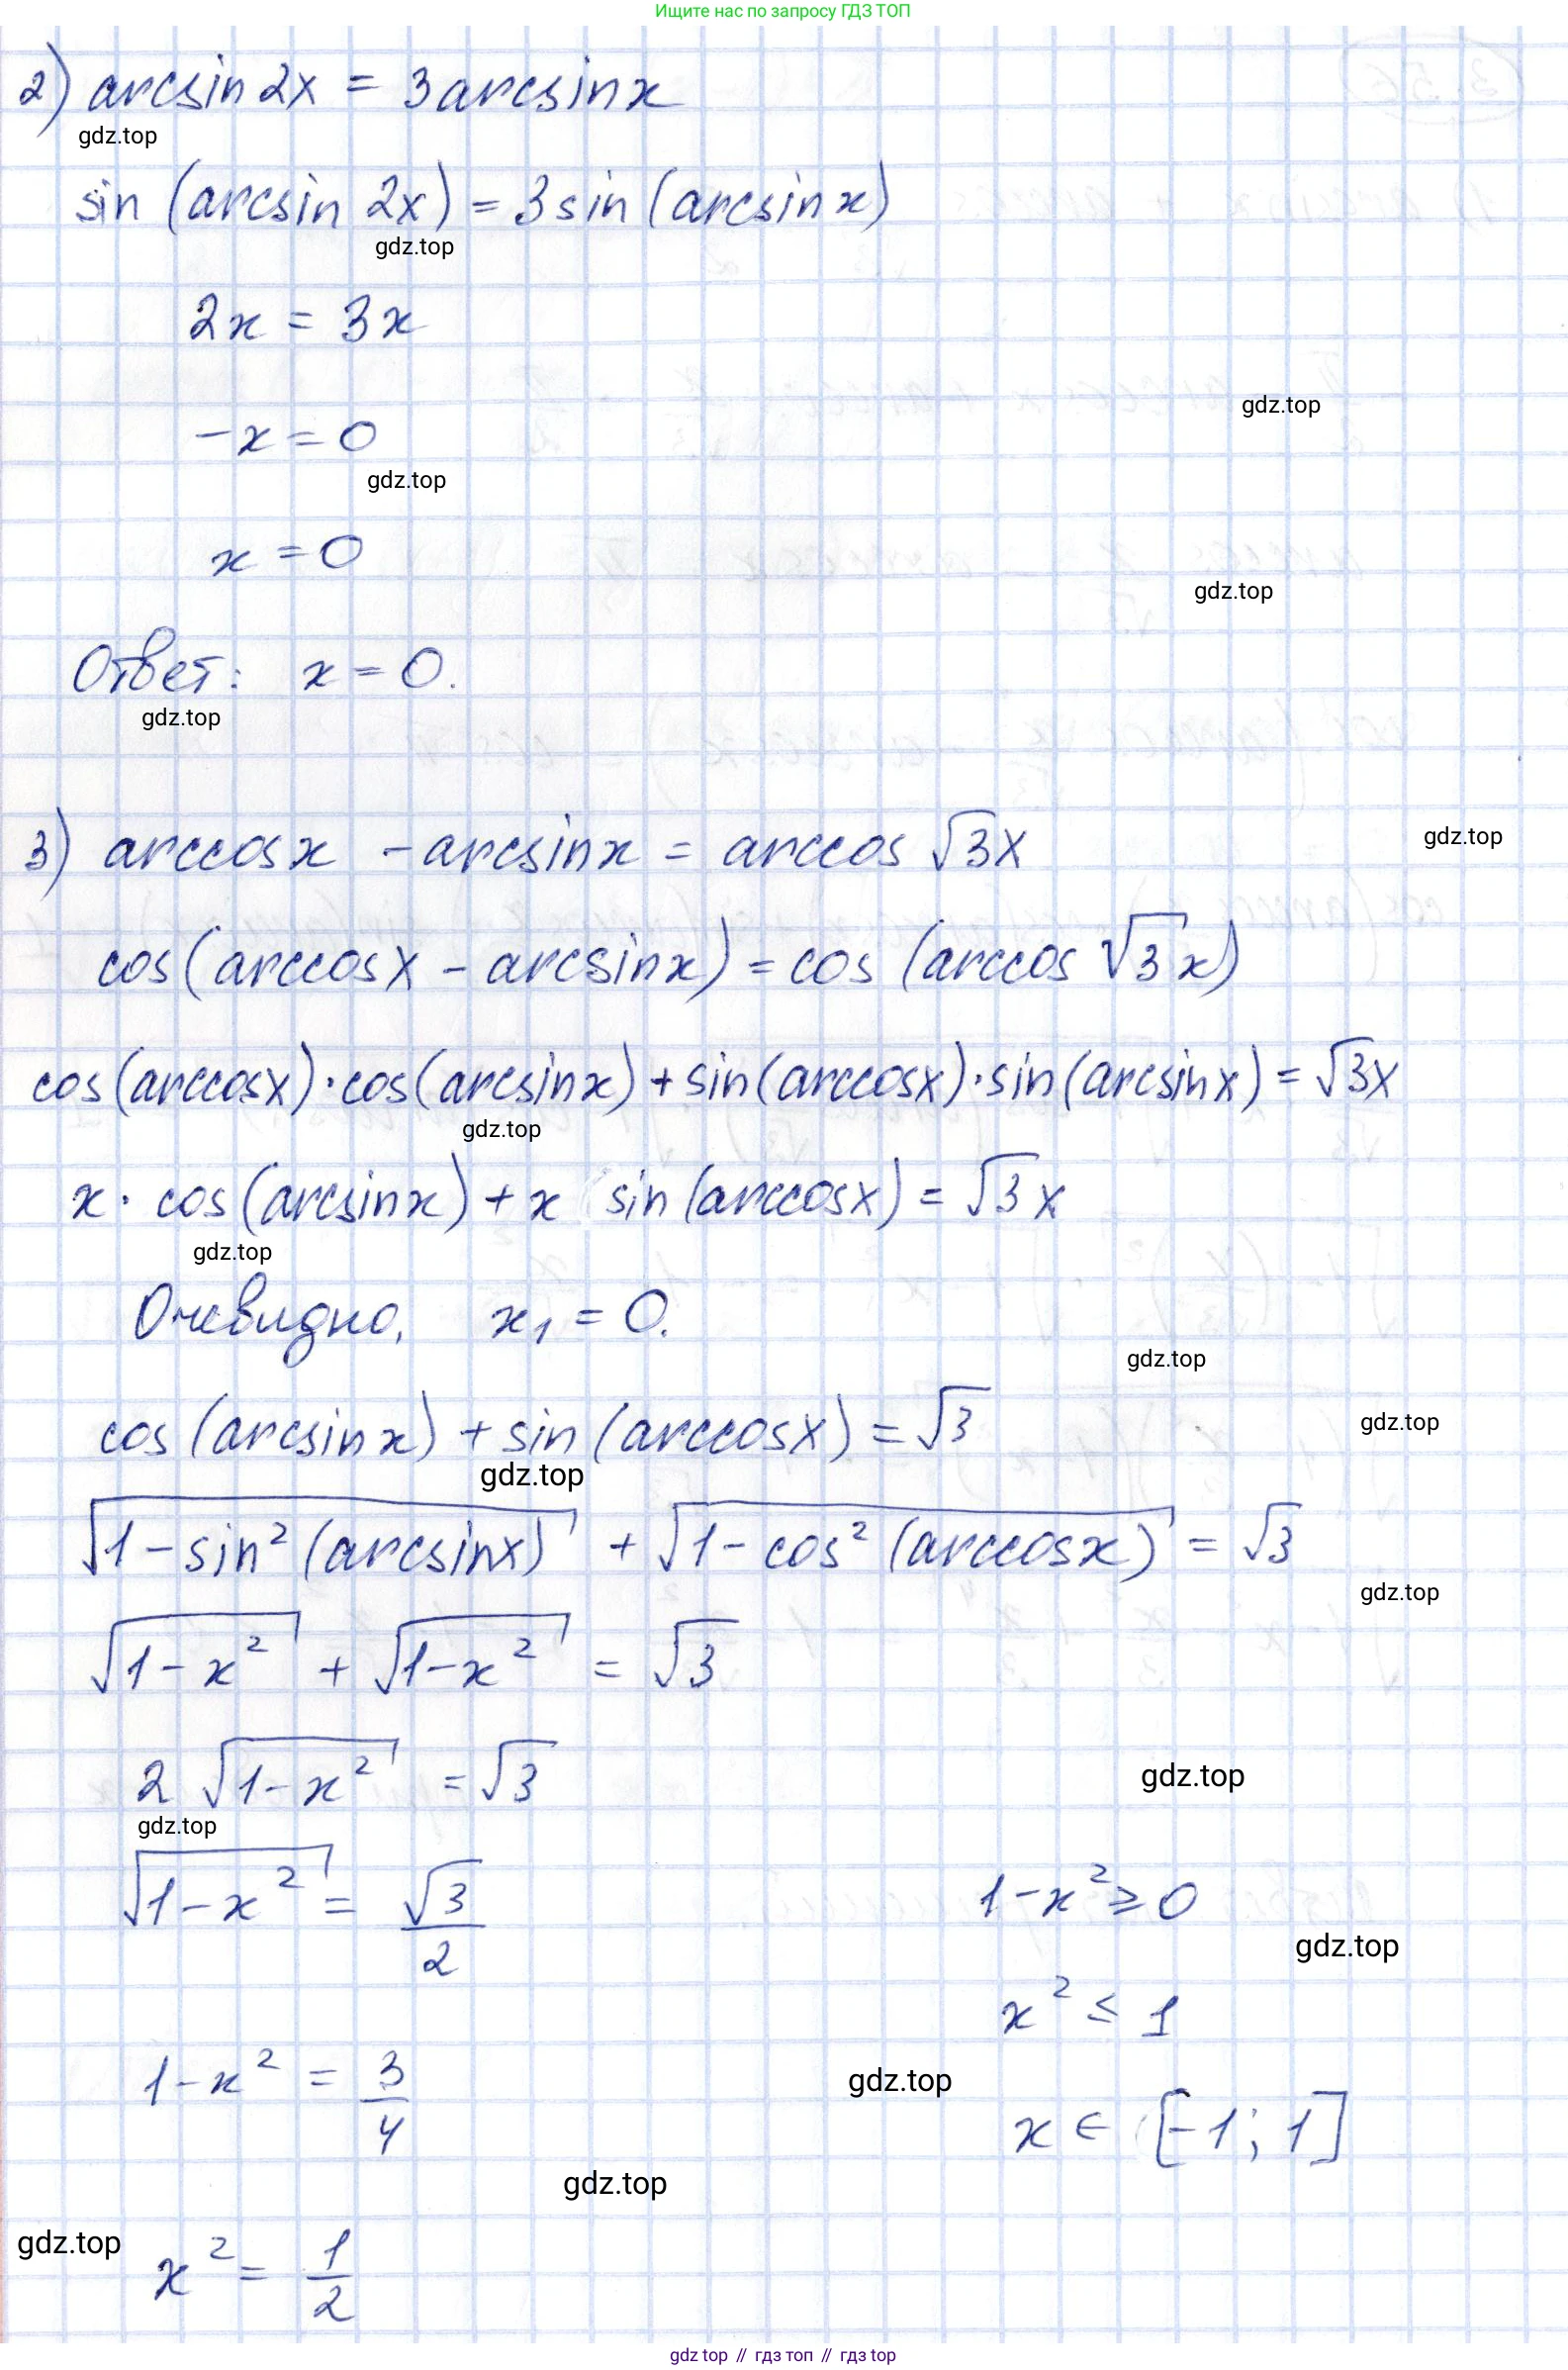 Ищите нас по запросу ГДЗ ТОП
2) arcsin 2x = 3 arcsin x
gdz.top
sin (arcsin 2x) = 3 sin (arcsin x)
gdz.top
2x = 3x
gdz.top
-x = 0
gdz.top
x = 0
gdz.top
Ответ: x = 0.
gdz.top
3) arccos x - arcsin x = arccos √3x
gdz.top
cos(arccos x - arcsin x) = cos (arccos √3 x)
cos(arccos x)·cos(arcsin x) + sin(arccos x)·sin(arcsin x) = √3x
gdz.top
x · cos(arcsin x) + x sin (arccos x) = √3 x
gdz.top
Очевидно, x₁ = 0.
gdz.top
cos (arcsin x) + sin (arccos x) = √3
gdz.top
gdz.top
√1 - sin² (arcsin x) + √1 - cos² (arccos x) = √3
gdz.top
√1 - x² + √1 - x² = √3
2 √1 - x² = √3
gdz.top
gdz.top
√1 - x² = √3/2
1 - x² ≥ 0
gdz.top
x² ≤ 1
1 - x² = 3/4
gdz.top
x ∈ [-1; 1]
gdz.top
gdz.top
x² = 1/2
gdz.top // гдз топ // гдз.top